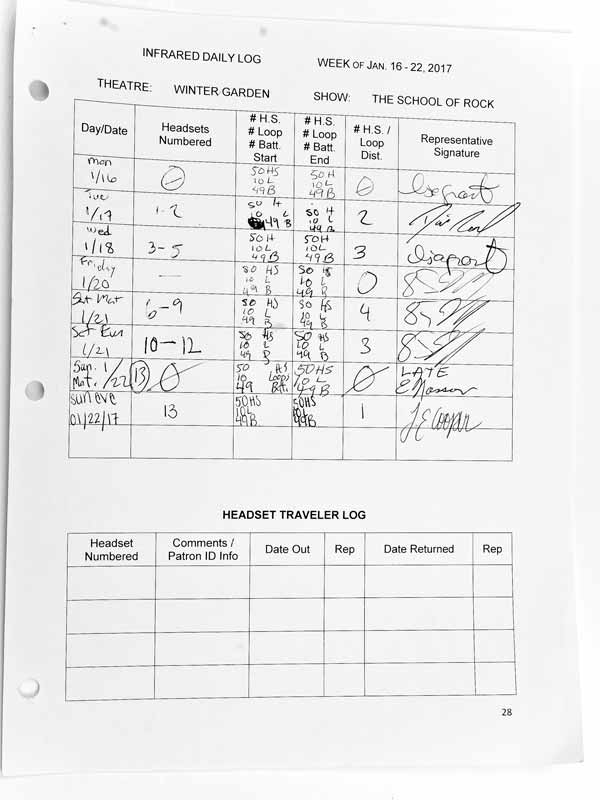 INFRARED DAILY LOG WEEK OF JAN. 16 - 22, 2017
THEATRE: WINTER GARDEN SHOW: THE SCHOOL OF ROCK
Day/Date
Headsets
Numbered
# H.S.
# Loop
# Batt.
Start
# H.S.
# Loop
# Batt.
End
# H.S. /
Loop
Dist.
Representative
Signature
Mon
1/16
0
50 HS
10 L
49 B
50 H
10 L
49 B
0
Tue
1/17
1-2
50 H
10 L
49 B
50 H
10 L
49 B
2
Wed
1/18
3-5
50 H
10 L
49 B
50H
10L
49B
3
Friday
1/20
—
50 HS
10 L
49 B
50 HS
10 L
49 B
0
Sat Mat
1/21
6-9
50 HS
10 L
49 B
50 HS
10 L
49 B
4
Sat Eve
1/21
10-12
50 HS
10 L
49 B
50 HS
10 L
49 B
3
Sun. 1
Mat. /22
(13) 0
50 HS
10 Loops
49 Batt.
50HS
10 L
49 B
0
LATE
sun eve
01/22/17
13
50HS
10L
49B
50HS
10L
49B
1
J E Cooper
HEADSET TRAVELER LOG
Headset
Numbered
Comments /
Patron ID Info
Date Out
Rep
Date Returned
Rep
28